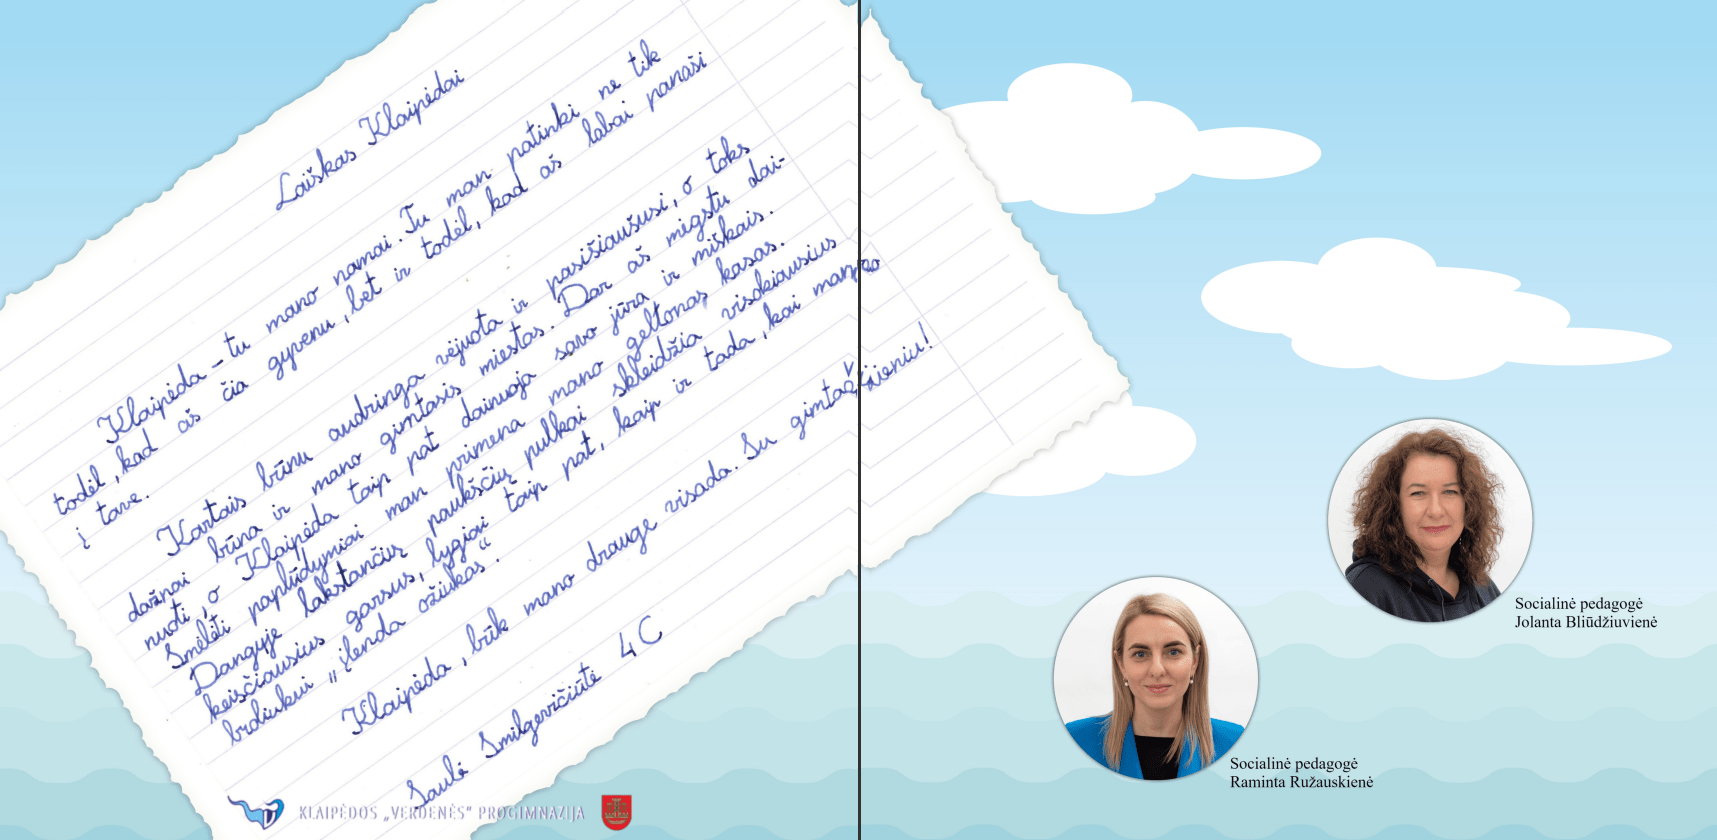 Laiškas Klaipėdai
Klaipėda – tu mano namai. Tu man patinki ne tik
todėl, kad aš čia gyvenu, bet ir todėl, kad aš labai panaši
į tave.
Kartais būnu audringa vėjuota ir pasišiaušusi, o toks
dažnai būna ir mano gimtasis miestas. Dar aš mėgstu dai-
nuoti, o Klaipėda taip pat dainuoja savo jūra ir miškais.
Smėlėti paplūdymiai man primena mano geltonas kasas.
Dangyje lakstančių paukščių pulkai skleidžia visokiausius
keisčiausius garsus, lygiai taip pat, kaip ir tada, kai mano
broliukui „įlenda ožiukas“.
Klaipėda, būk mano drauge visada. Su gimtadieniu!
Saulė Smilgevičiūtė 4C
KLAIPĖDOS „VERDENĖS“ PROGIMNAZIJA
Socialinė pedagogė
Jolanta Bliūdžiuvienė
Socialinė pedagogė
Raminta Ružauskienė